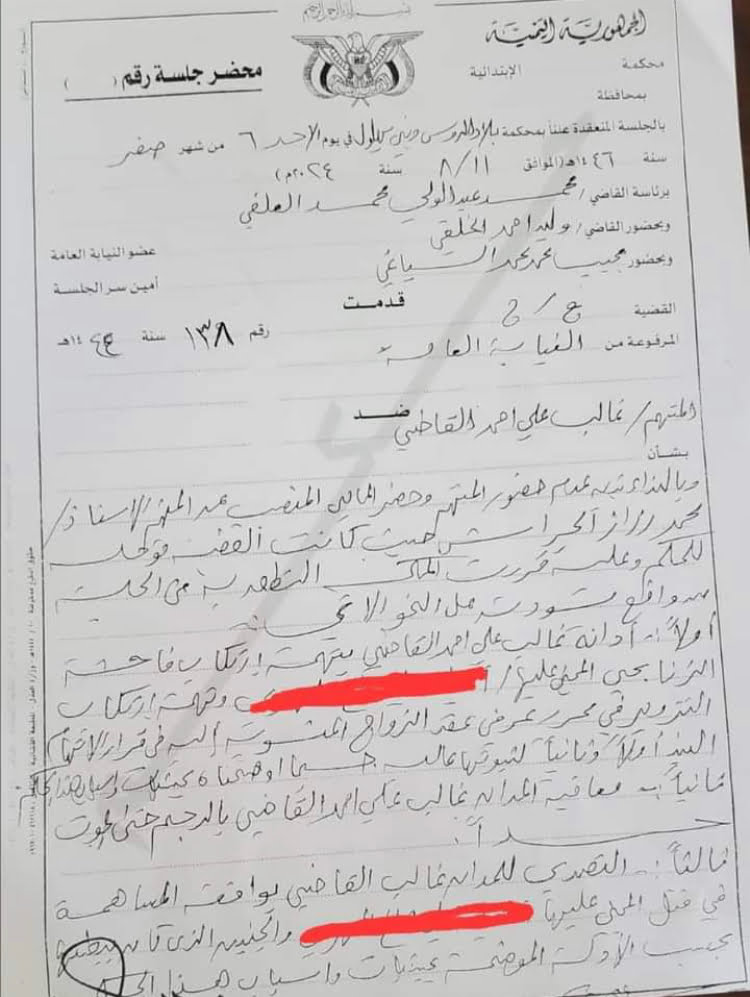 بسم الله الرحمن الرحيم
الجمهورية اليمنية
محكمة الإبتدائية
بمحافظة
محضر جلسة رقم ( )
بالجلسة المنعقدة علناً بمحكمة بلاد الروس وبني بهلول في يوم الاحد ٦ من شهر صفر
سنة ١٤٤٦هـ (الموافق ١١/٨ سنة ٢٠٢٤م)
برئاسة القاضي/ محمد عبدالولي محمد العلفي
وبحضور القاضي/ وليد احمد الخلقي عضو النيابة العامة
وبحضور مجيب محمد محمد السياغي أمين سر الجلسة
القضية ج/ج قدمت
المرفوعة من النيابة العامة رقم ١٣٨ سنة ١٤٤٥هـ
ضد
المتهم/ غالب علي احمد القاضي
بشأن
وبالنداء تبين عدم حضور المتهم وحضر المحامي المنصب عن المتهم الاستاذ/
محمد الحراسي حيث كانت القضية
للحكم وعليه قررت المحكمة النطق به من الجلسة
من واقع مسودته على النحو الاتي
أولاً:- أدانة غالب علي احمد القاضي بتهمة إرتكاب فاحشة
الزنا بحق المجني عليها/ وتهمة إرتكاب
التزوير في محرر عرفي عقد الزواج المنسوبة إليه في قرار الاتهام
البند أولاً وثانياً لثبوتها حسبما اوضحناه بحيثيات
ثانياً:- معاقبة المدان غالب علي احمد القاضي بالرجم حتى الموت
حداً.
ثالثاً:- التصدي للمدان غالب القاضي بواقعة المساهمة
في قتل المجني عليها والجنين الذي كان ببطنها
بحسب الأدلة الموضحة بحيثيات واسباب هذا